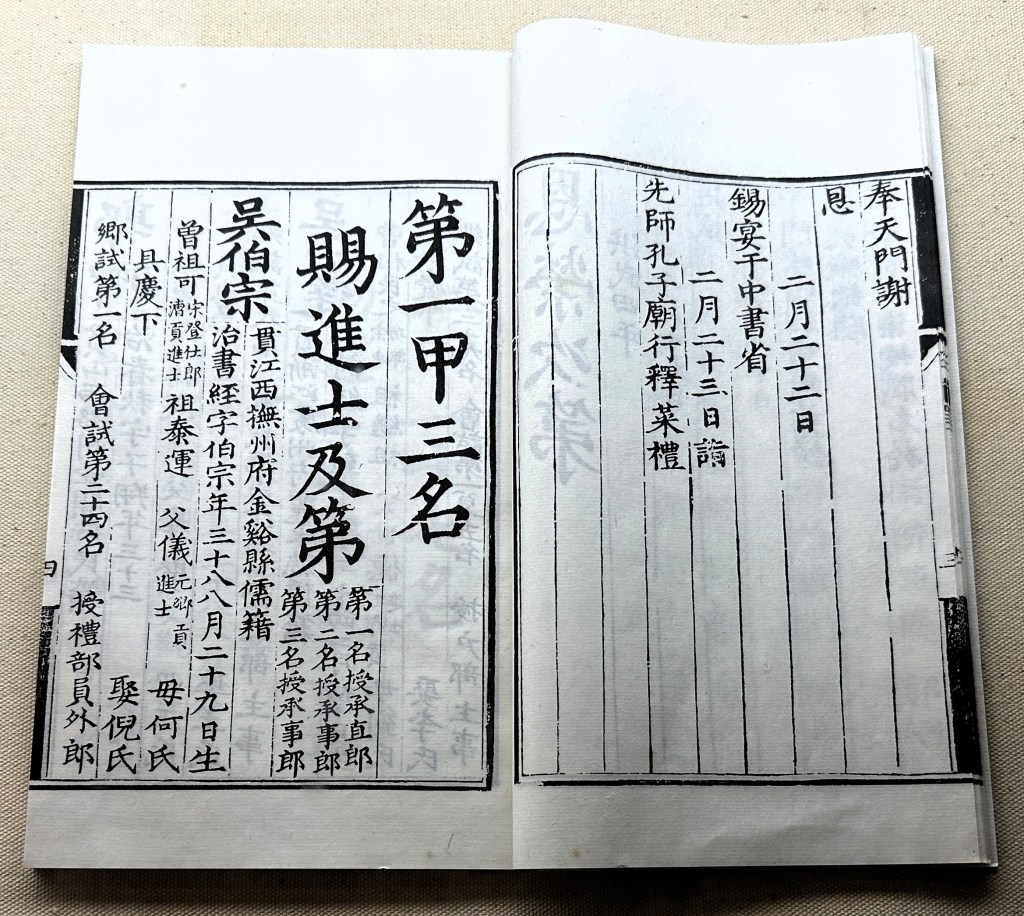 奉天門謝
恩
二月二十二日
錫宴于中書省
二月二十三日詣
先師孔子廟行釋菜禮
第一甲三名
賜進士及第
第一名授承直郎
第二名授承事郎
第三名授承事郎
吳伯宗
貫江西撫州府金谿縣儒籍
治書經字伯宗年三十八八月二十九日生
曾祖可
宋登仕郎
漕貢進士
祖泰運
父儀
元鄉貢
進士
母何氏
具慶下
娶倪氏
鄉試第一名
會試第二十四名
授禮部員外郎